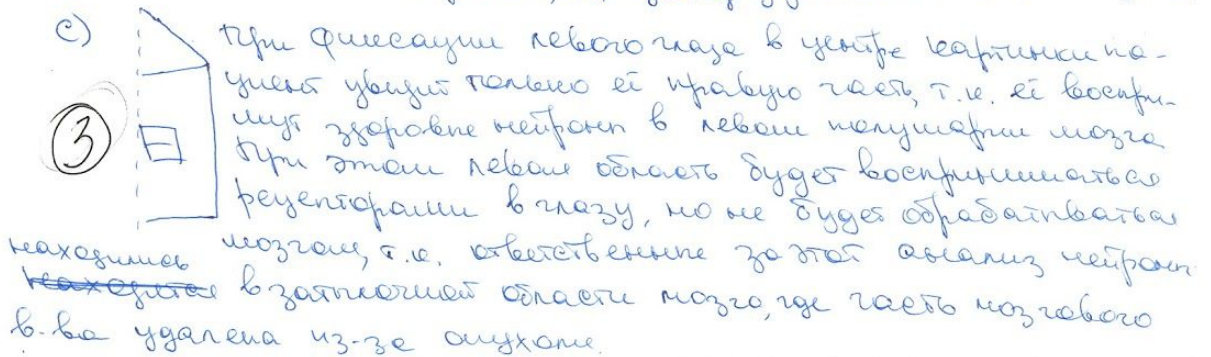 c) При фиксации левого глаза в центре картинки па-
циент увидит только её правую часть, т.к. её воспри-
мут здоровые нейроны в левом полушарии мозга
③ При этом левая область будет восприниматься
рецепторами в глазу, но не будет обрабатываться
мозгом, т.к. ответственные за этот анализ нейроны
находились в затылочной области мозга, где часть мозгового
в-ва удалена из-за опухоли.